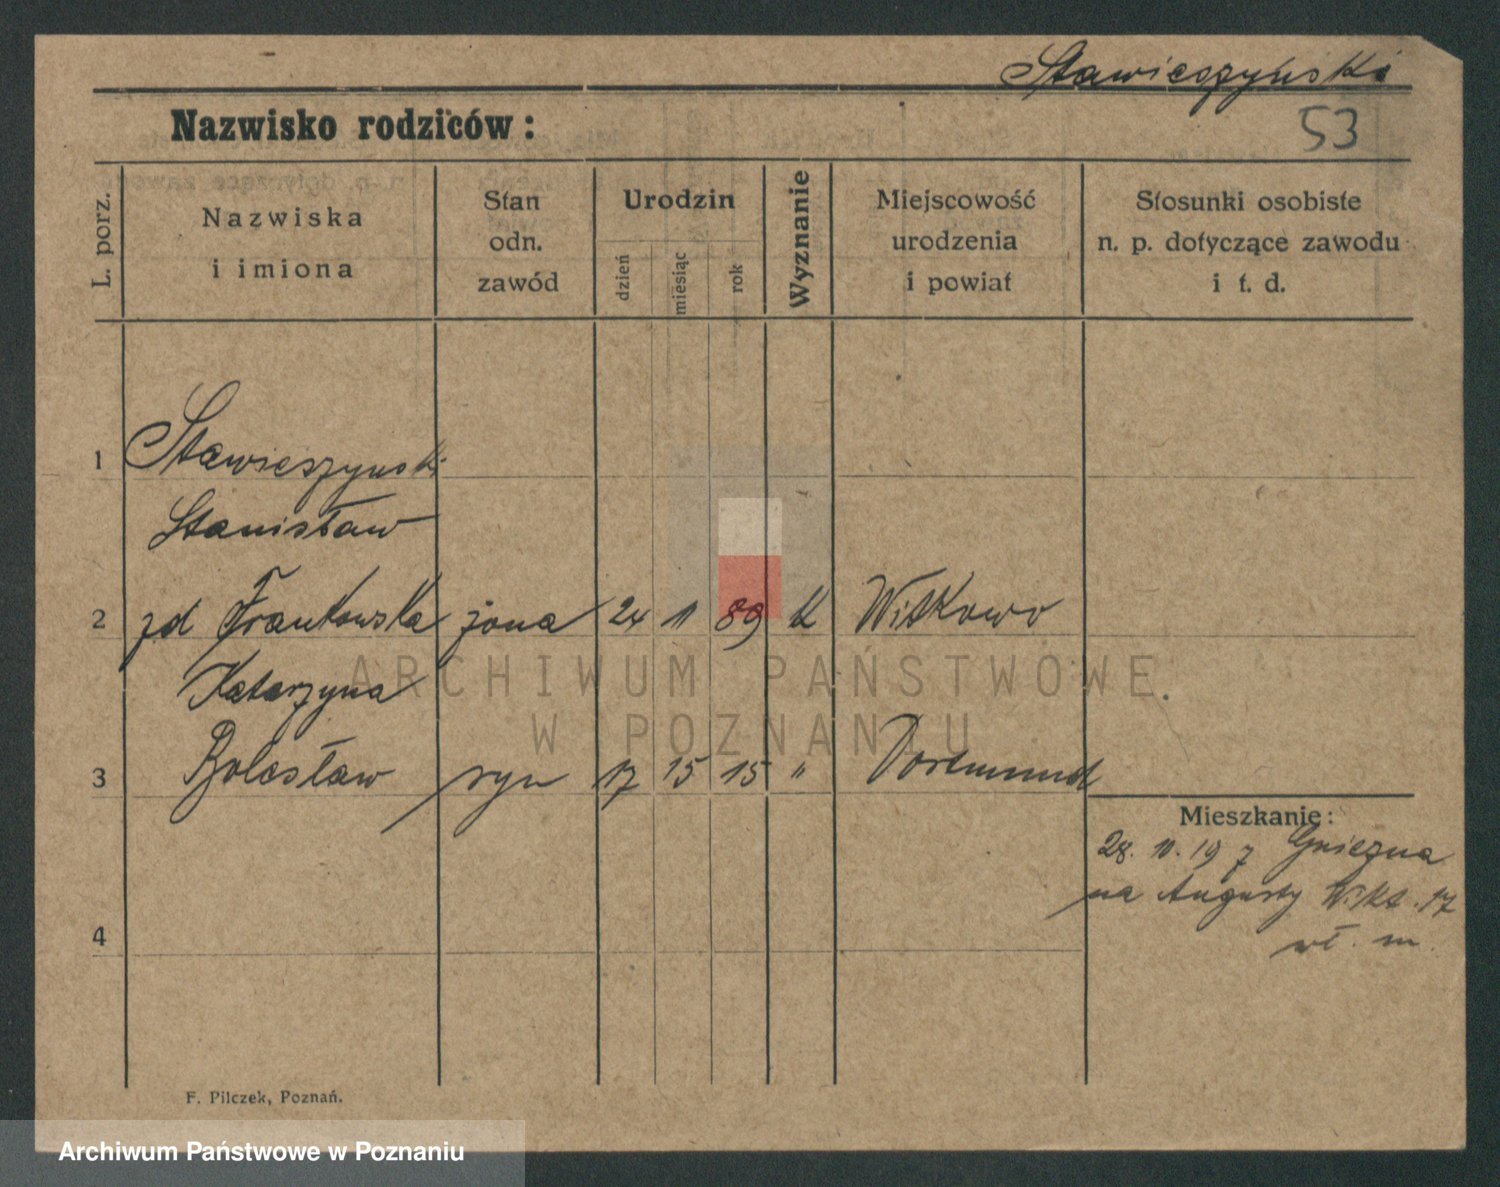 Stawieszyński
Nazwisko rodziców:
53
L. porz.
Nazwiska
i imiona
Stan
odn.
zawód
Urodzin
dzień
miesiąc
rok
Wyznanie
Miejscowość
urodzenia
i powiat
Stosunki osobiste
n. p. dotyczące zawodu
i t. d.
1 Stawieszynski
Stanisław
2 zd Frankowska żona 24 11 89 k Witkowo
Katarzyna
3 Bolesław syn 17 15 15 " Dortmund
Mieszkanie:
28. 10. 19 z Gniezna
na Augusty Wikt. 17
wł. m.
4
F. Pilczek, Poznań.
ARCHIWUM PAŃSTWOWE
W POZNANIU
Archiwum Państwowe w Poznaniu